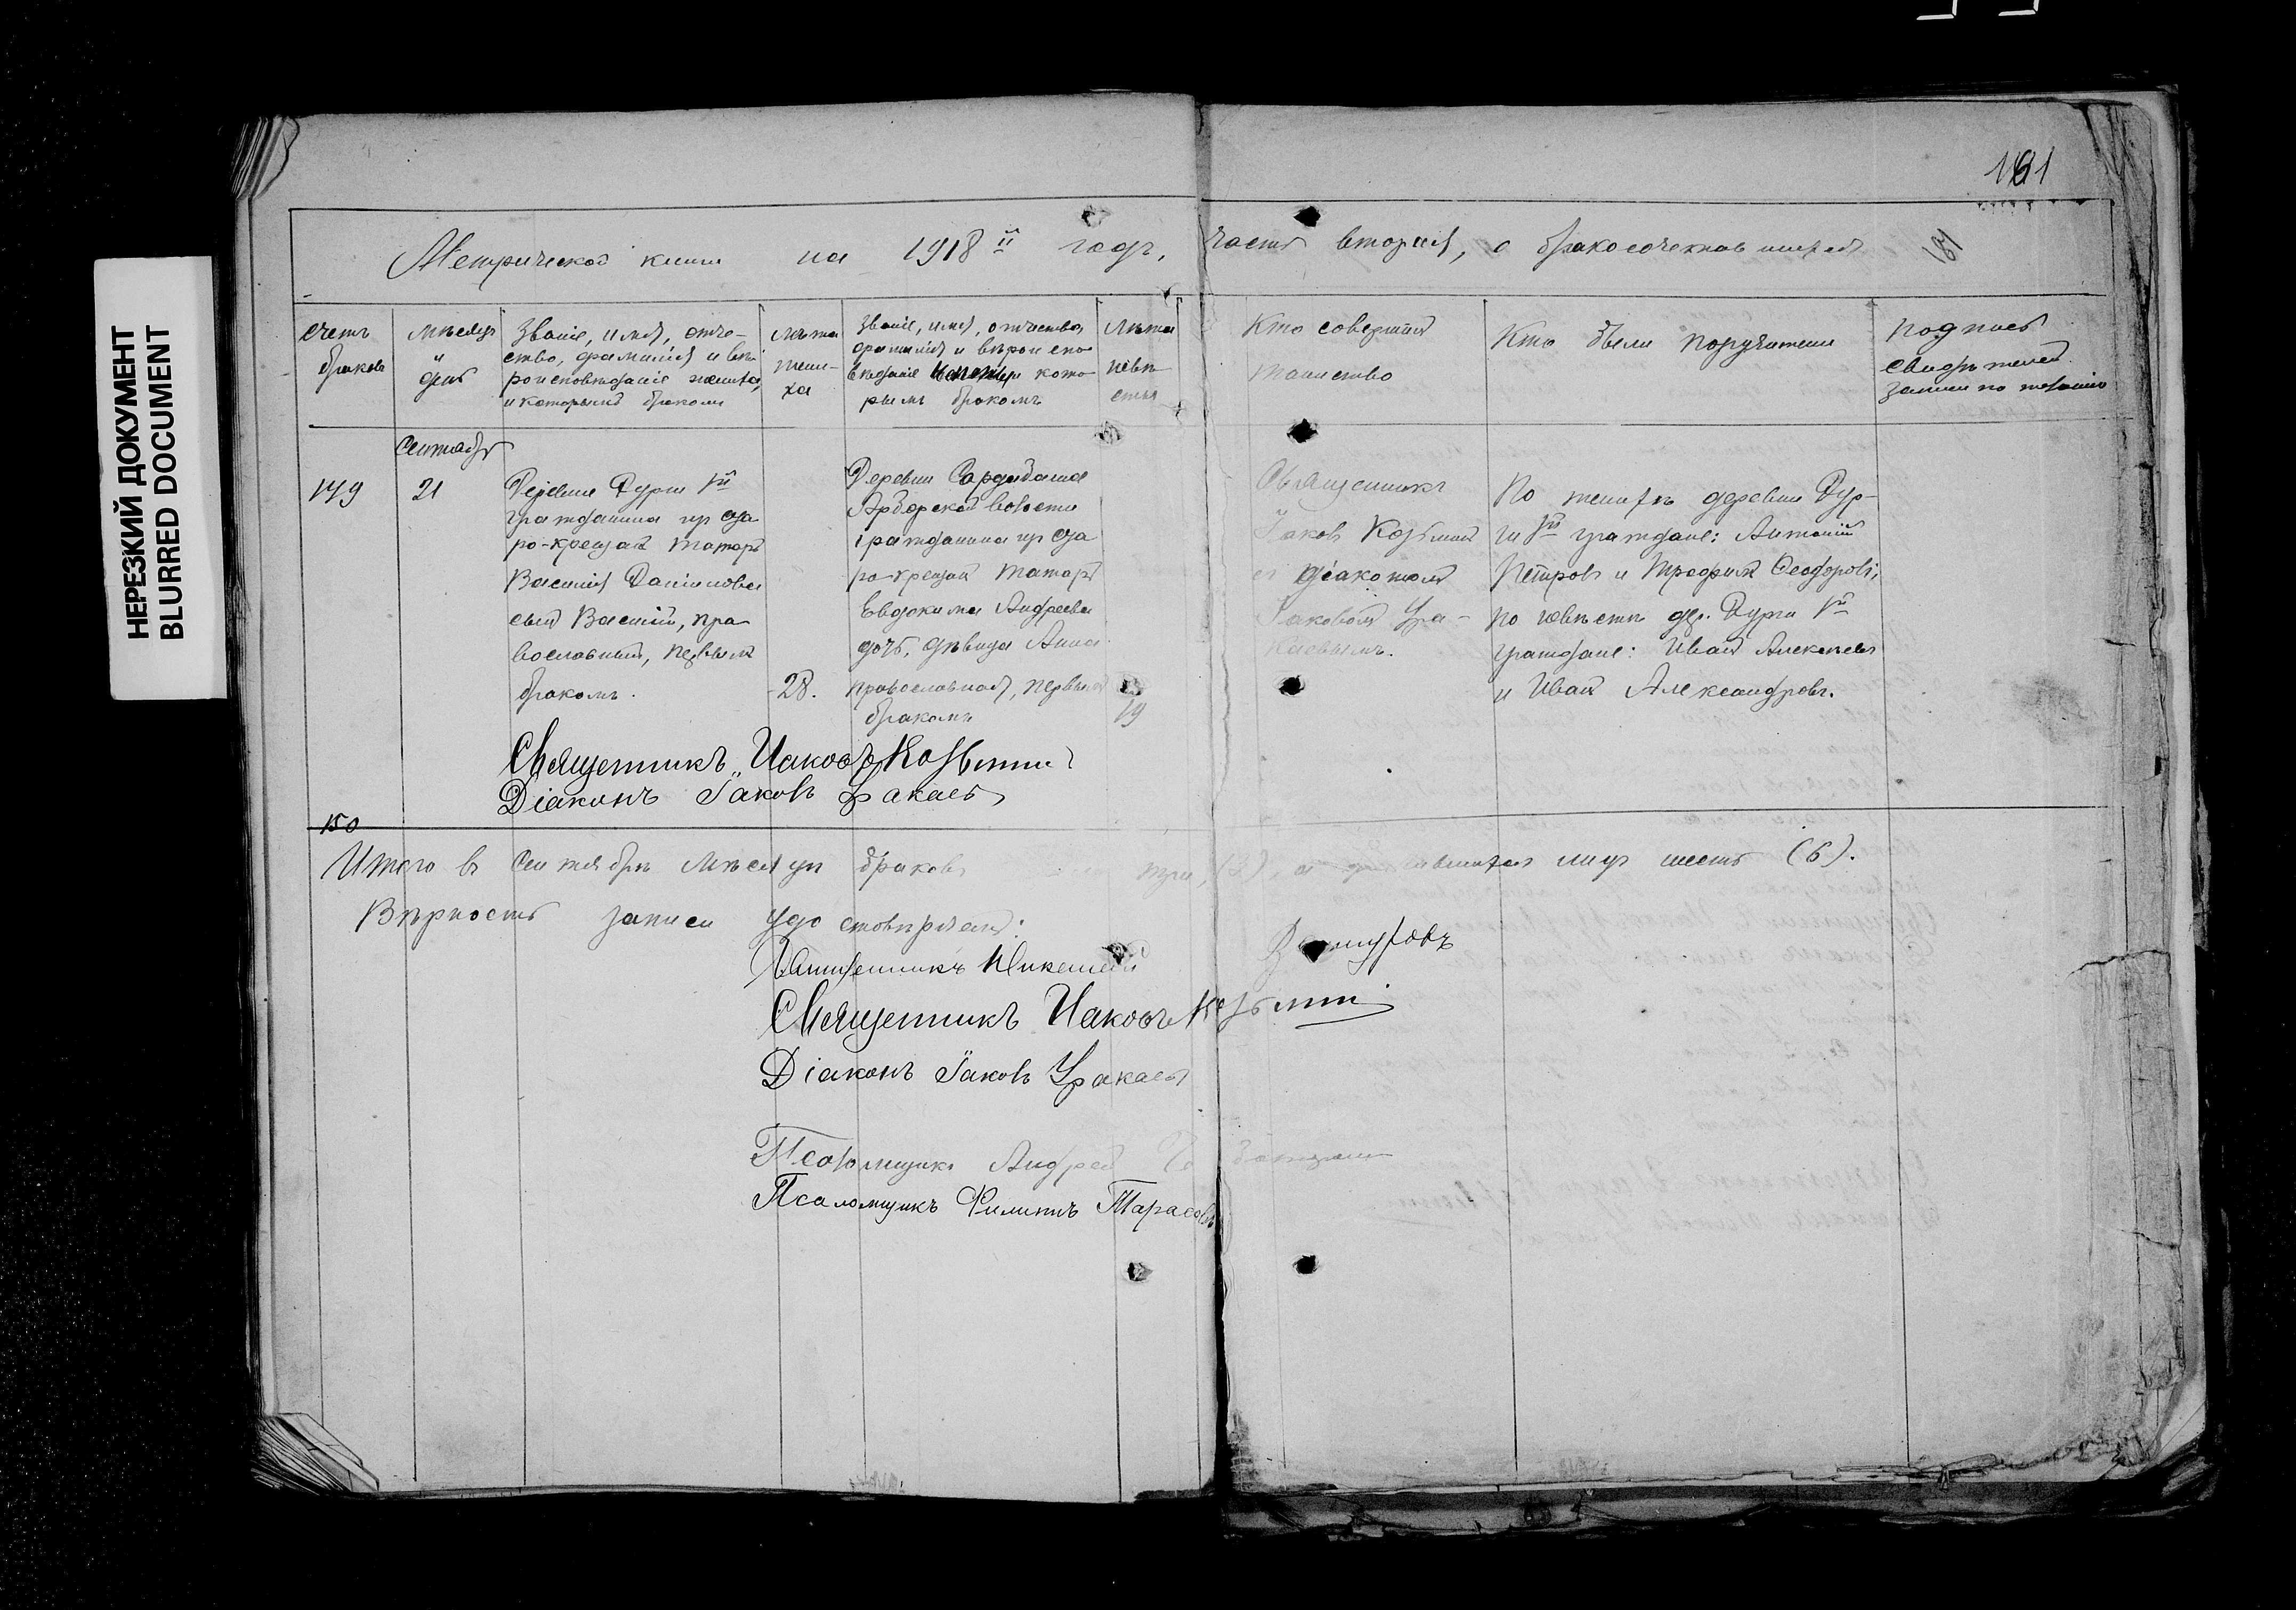 НЕРЕЗКИЙ ДОКУМЕНТ
BLURRED DOCUMENT
181
Метрической книги на 1918 й годъ, часть вторая, о бракосочетавшихся
181
Счетъ
браковъ
Мѣсяцъ
и
день
Званіе, имя, отче-
ство, фамилія и вѣ-
роисповѣданіе жениха,
и которымъ бракомъ
Лѣта
жени-
ха
Званіе, имя, отчество,
фамилія и вѣроиспо-
вѣданіе невѣсты, кото-
рымъ бракомъ
Лѣта
невѣ-
сты
Кто совершалъ
таинство
Кто были поручители
Подпись
свидѣтелей
записи по желанію
Сентябрь
149
21
Деревни Дурги 1й
гражданина из ста
ро-крещен. татаръ
Василія Даніилова
сынъ Василій, пра-
вославный, первымъ
бракомъ.
28.
Деревни
Арборской волости
гражданина из ста
ро-крещен. татаръ
Евдокима Андреева
дочь, дѣвица Анна
православная, первымъ
бракомъ
19
Священникъ
Іаковъ Козьминъ
съ діакономъ
Іаковомъ Ура-
каевымъ.
По женихѣ деревни Дур-
ги 1й граждане: Антоній
Петровъ и Трофимъ Феодоровъ;
по невѣстѣ дер. Дурги 1й
граждане: Иванъ Алексѣевъ
и Иванъ Александровъ.
Священникъ Иаковъ Козьминъ
Діаконъ Іаковъ Уракаевъ
150
Итого въ Сентябрѣ мѣсяцѣ браковъ три, (3), а лицъ шесть (6).
Вѣрность записи удостовѣряемъ:
Священникъ
Священникъ Иаковъ Козьминъ
Діаконъ Іаковъ Уракаевъ
Псаломщикъ Андрей
Псаломщикъ Филиппъ Тарасовъ